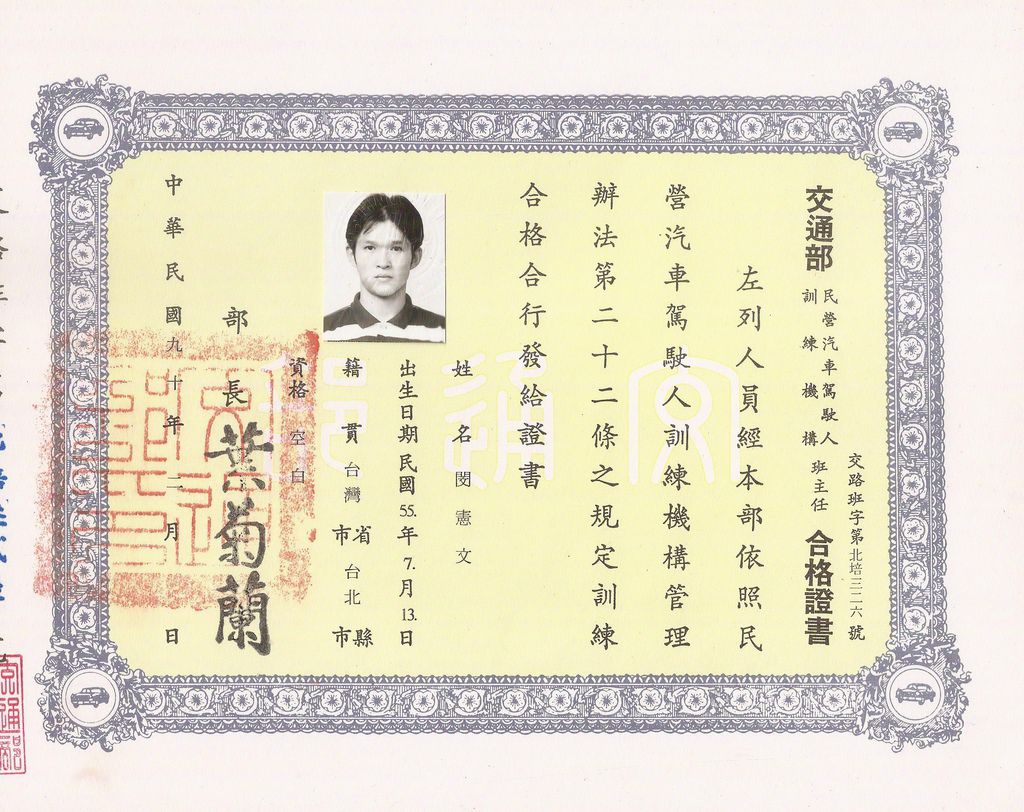 交路班字第北培三二六號
交通部
民營汽車駕駛人
訓練機構
班主任
合格證書
左列人員經本部依照民
營汽車駕駛人訓練機構管理
辦法第二十二條之規定訓練
合格合行發給證書
姓名閔憲文
出生日期民國55.年7.月13.日
籍貫台灣省市台北縣市
資格空白
部長葉菊蘭
中華民國九十年二月日
交通部